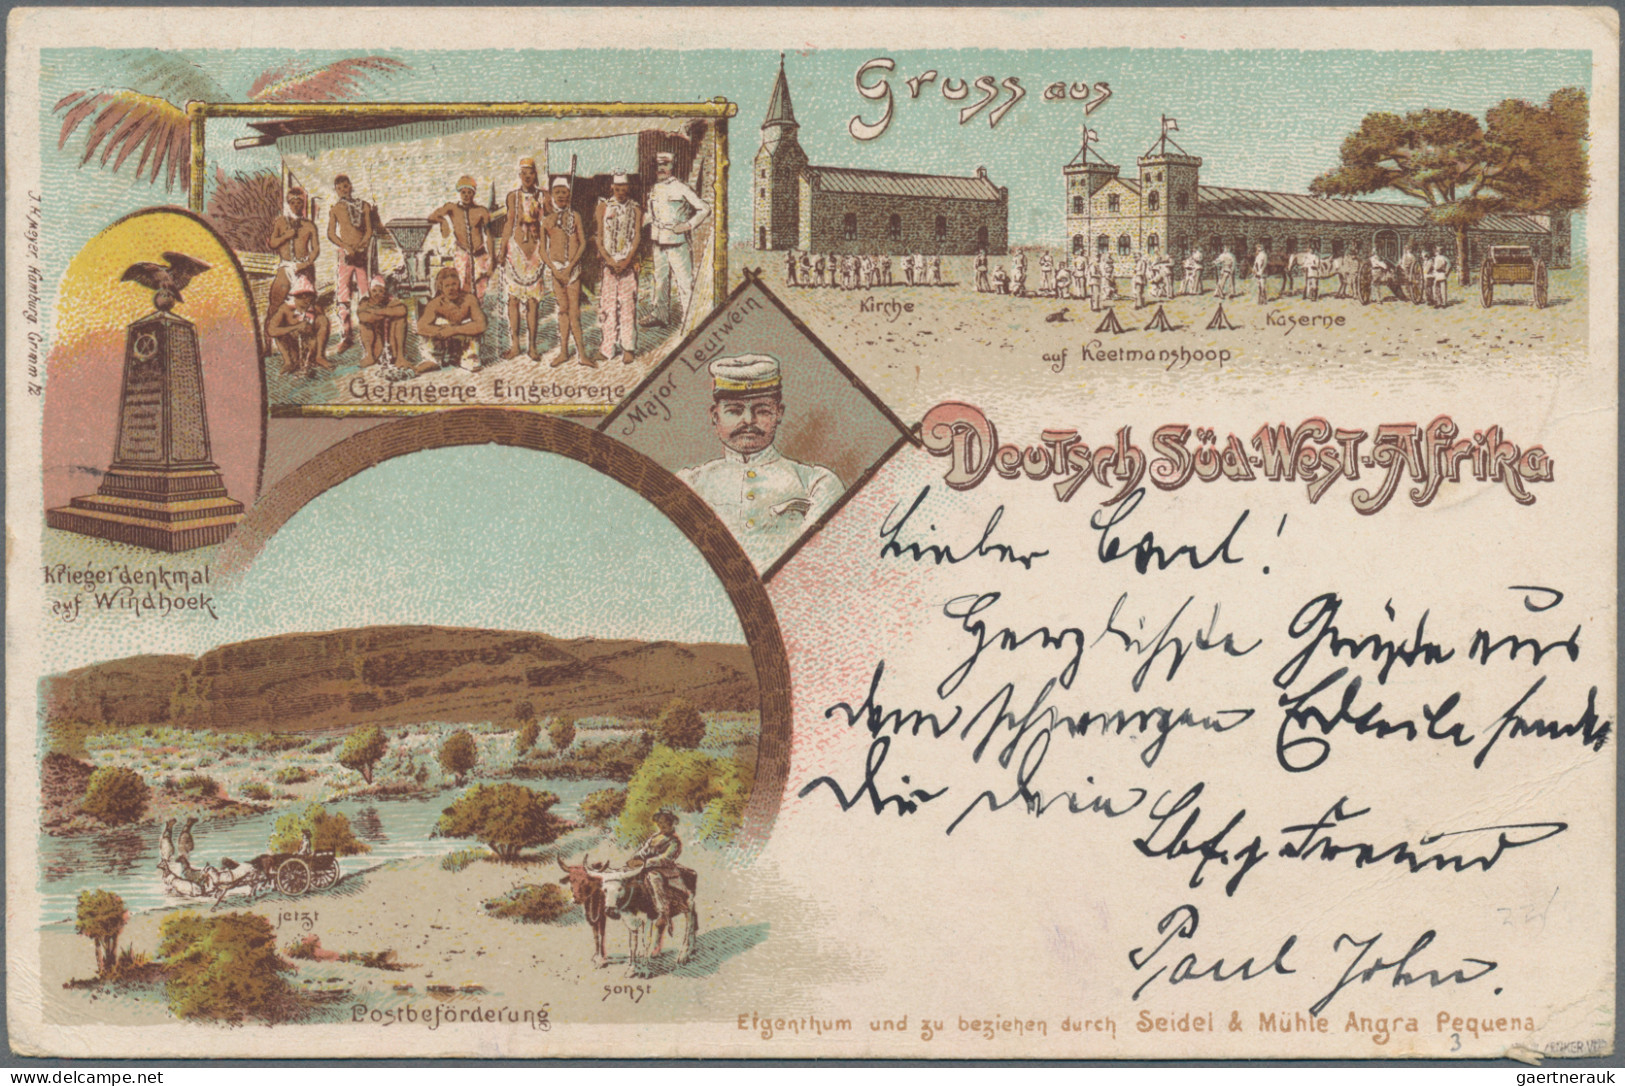 Gruss aus
Kirche
Kaserne
auf Keetmanshoop
Gefangene Eingeborene
Major Leutwein
J. H. Meyer, Hamburg, Grimm 12
Kriegerdenkmal
auf Windhoek.
Deutsch Süd-West-Afrika
Lieber Carl!
Herzlichste Grüße aus
dem schwarzen Erdteile sendet
Dir Dein
Freund
Paul John.
jetzt
sonst
Postbeförderung
Eigenthum und zu beziehen durch Seidel & Mühle Angra Pequena
3
gaertnerauk